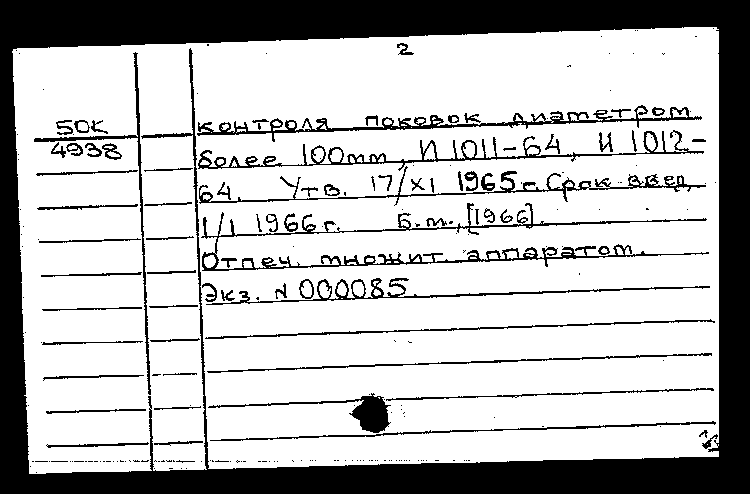 2
50К контроля поковок диаметром
4938 более 100mm, И 1011-64, И 1012-
64. Утв. 17/XI 1965г. Срок введ.
1/I 1966г. Б.м., [1966].
Отпеч. множит. аппаратом.
Экз. N 000085.